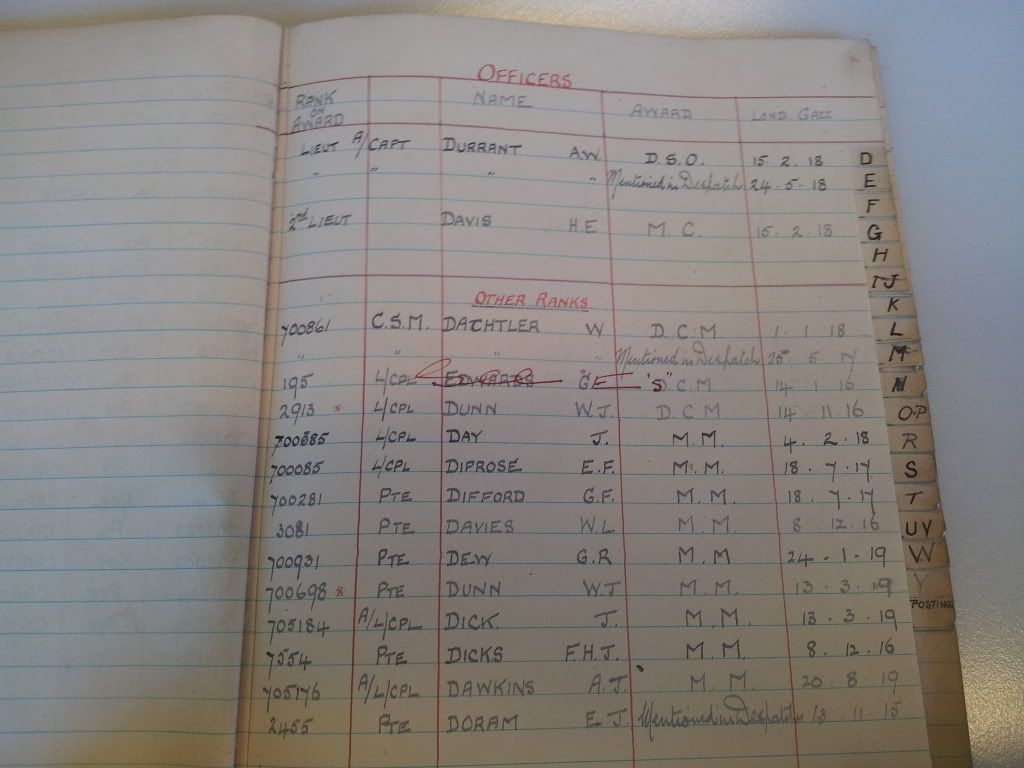 OFFICERS
RANK ON AWARD NAME AWARD LOND. GAZZ
LIEUT A/CAPT DURRANT A.W. D.S.O. 15.2.18
" " " " Mentioned in Despatch 24.5.18
2nd LIEUT DAVIS H.E M.C. 15.2.18
OTHER RANKS
700861 C.S.M. DACHTLER W D.C.M 1.1.18
" " " " Mentioned in Despatch 25 5 17
195 L/CPL EDWARDS D.C.M 14.1.16
2913 * L/CPL DUNN W.J. D.C.M 14.11.16
L/CPL DAY J. M.M. 4.2.18
700085 L/CPL DIPROSE E.F. M.M. 18.7.17
700281 PTE DIFFORD G.F. M.M. 18.7.17
3081 PTE DAVIES W.L M.M. 8.12.16
700931 PTE DEW G.R M.M 24.1.19
700698 * PTE DUNN W.J M.M. 13.3.19
705184 A/L/CPL DICK J. M.M. 13.3.19
7554 PTE DICKS F.H.J. M.M. 8.12.16
705176 A/L/CPL DAWKINS A.J. M.M. 20.8.19
2455 PTE DORAM E J. Mentioned in Despatch 13.11.15
D
E
F
G
H
IJ
K
L
M
N
OP
R
S
T
UV
W
Y
POSTINGS